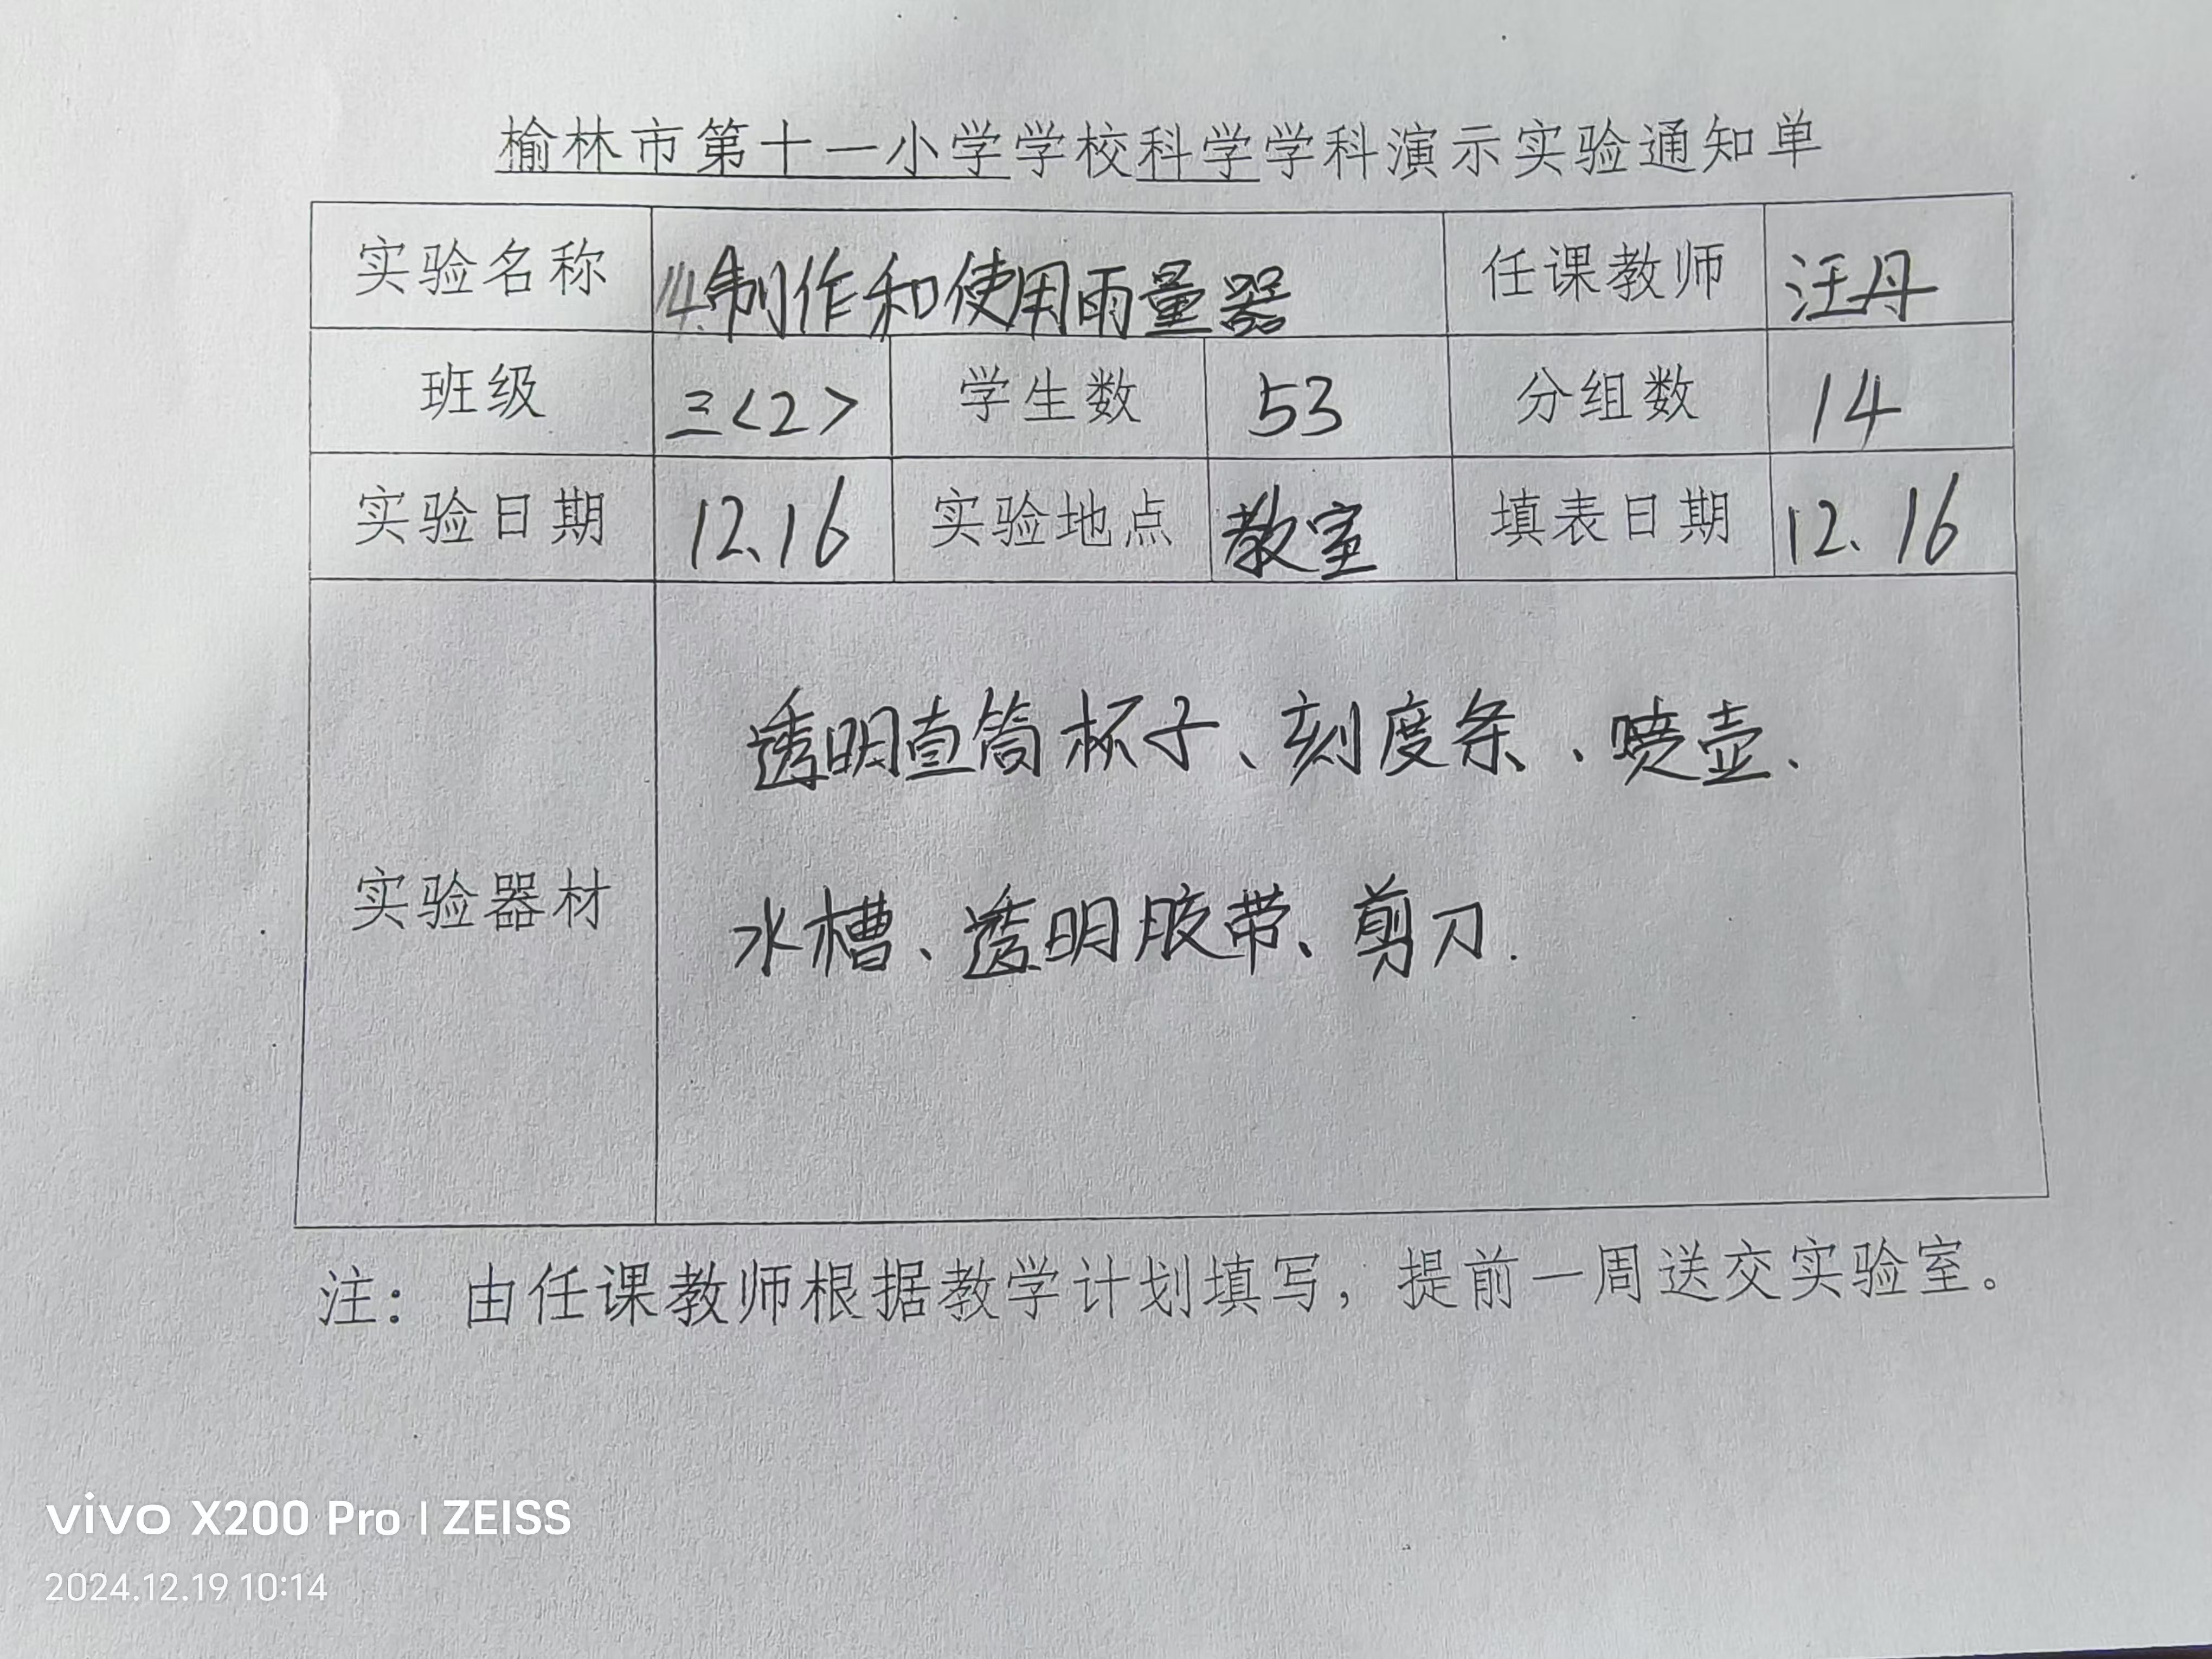 榆林市第十一小学学校科学学科演示实验通知单
实验名称 14.制作和使用雨量器 任课教师 汪丹
班级 三<2> 学生数 53 分组数 14
实验日期 12.16 实验地点 教室 填表日期 12.16
透明直筒杯子、刻度条、喷壶、
实验器材 水槽、透明胶带、剪刀.
注：由任课教师根据教学计划填写，提前一周送交实验室。
vivo X200 Pro | ZEISS
2024.12.19 10:14